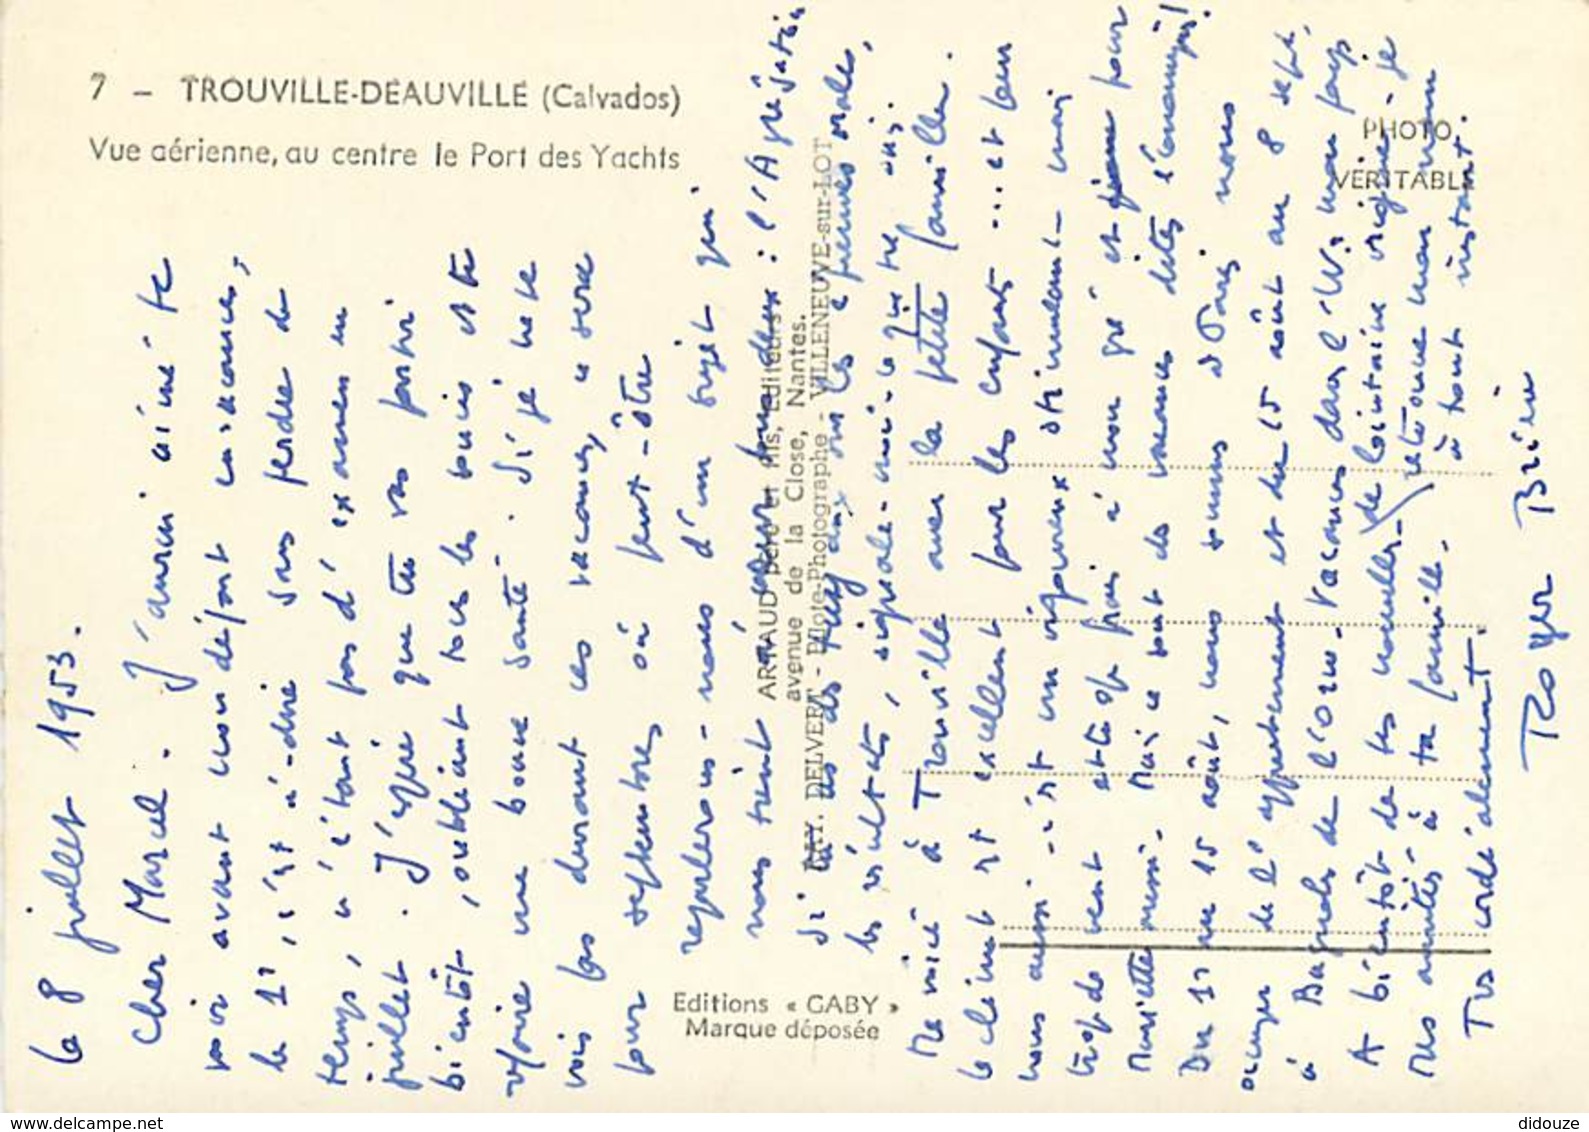 7 – TROUVILLE-DEAUVILLE (Calvados)
Vue aérienne, au centre le Port des Yachts
PHOTO
VÉRITABLE
Editions « GABY »
Marque déposée
ARTAUD père et fils, Editeurs
avenue de la Close, Nantes.
RAY. DELVERT - Pilote-Photographe - VILLENEUVE-sur-LOT
le 8 juillet 1953.
Cher Marcel. J'aurai aimé te
voir avant mon départ en vacances,
le 12, c'est à-dire sans perdre de
temps, n'étant pas d'examen en
juillet. J'espère que tu vas partir
bientôt, oubliant tous les soucis et te
refaire une bonne santé. Si je ne te
vois pas durant ces vacances, ce sera
pour septembre où peut-être
reparlerons-nous d'un sujet qui
nous tient à cœur tous deux : l'Agrégation
Si tu as du les épreuves orales,
les résultats, signale-moi
Me voici à Trouville avec la petite famille.
Le climat est excellent pour les enfants ... et pour
nous aussi - c'est un vigoureux stimulant - mais
trop de vent et trop frais à mon gré et pour
Mariette aussi. Mais ce sont des vacances dites économiques!
Du 12 au 15 août, nous serons à Paris nous
occuper de l'appartement et du 15 août au 8 sept,
à Bagnoles de l'Orne. Vacances dans l'W, mon pays
A bientôt de tes nouvelles - de lointaine origine - je
Mes amitiés à ta famille. retrouve mon nom
à tout instant.
Très cordialement.
Roger Brien
www.delcampe.net
didouze